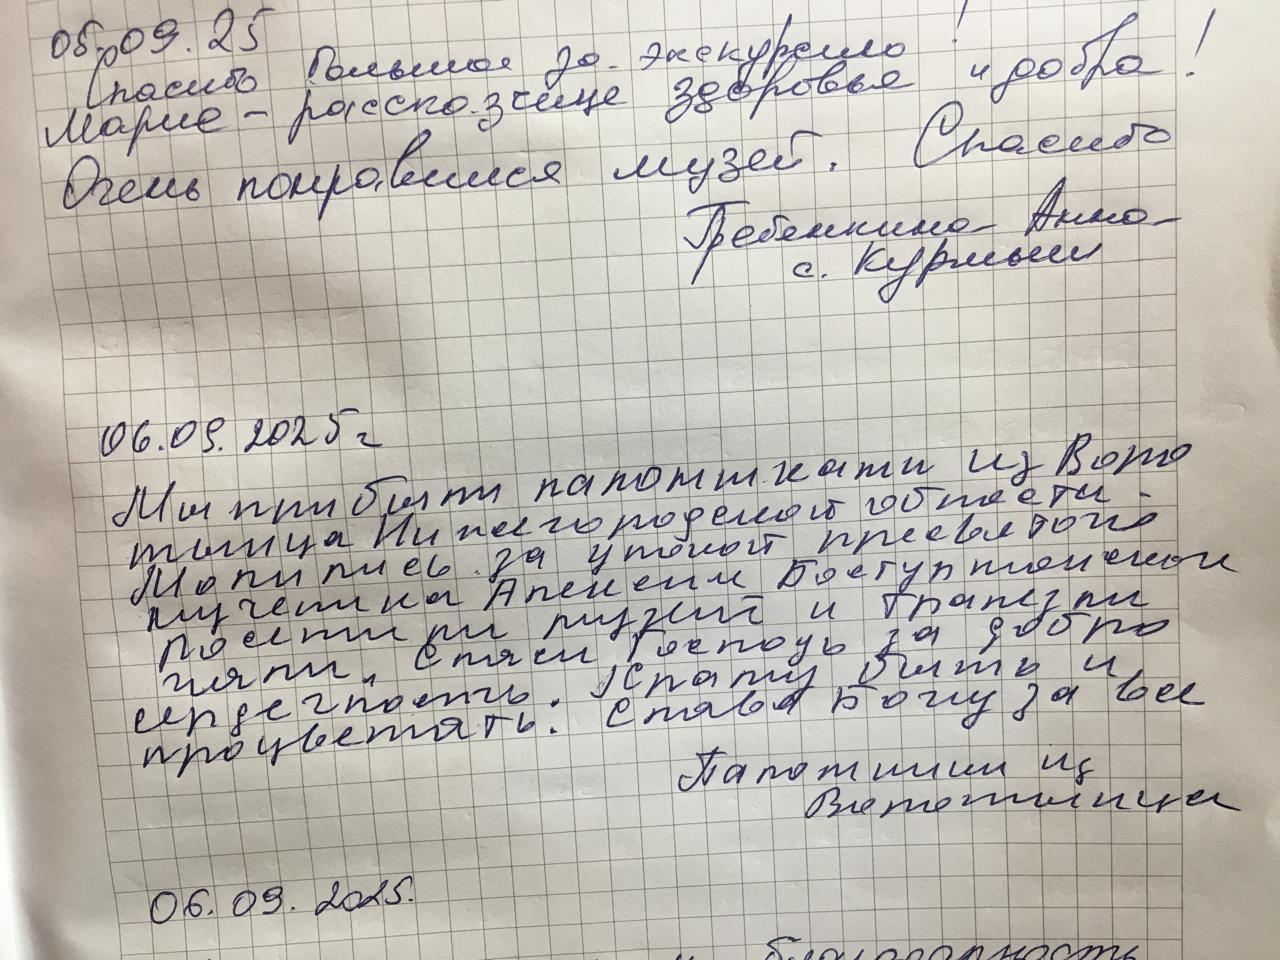 05.09.25
Спасибо большое за экскурсию!
Марие - рассказчице здоровья и добра!
Очень понравился музей. Спасибо
Гребенкина Анна
с. Курмыш
06.09.2025г
Мы прибыли паломниками изВоро
тынца Нижегородской области.
Молились за упокой пресвятого
мученика Алексия Бортсурманского
Посетили музей и трапезни
чали. Спаси Господь за добро
сердечность. Храму быть и
процветать. Слава Богу за все
Паломники из
Воротынца
06.09.2025.
благодарность